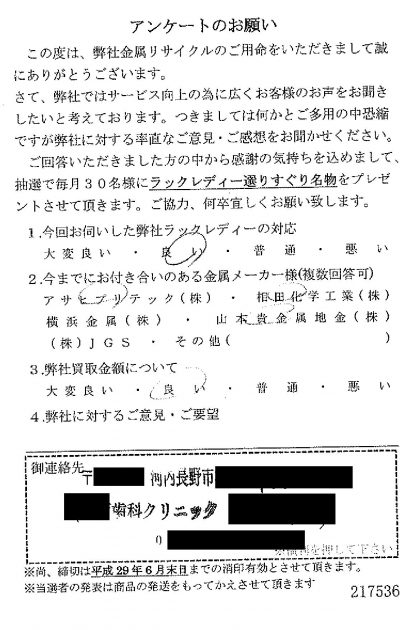 アンケートのお願い
この度は、弊社金属リサイクルのご用命をいただきまして誠
にありがとうございます。
さて、弊社ではサービス向上の為に広くお客様のお声をお聞き
したいと考えております。つきましては何かとご多用の中恐縮
ですが弊社に対する率直なご意見・ご感想をお聞かせください。
ご回答いただきました方の中から感謝の気持ちを込めまして、
抽選で毎月30名様にラックレディー選りすぐり名物をプレゼ
ントさせて頂きます。ご協力、何卒宜しくお願い致します。
1.今回お伺いした弊社ラックレディーの対応
大変良い ・ 良い ・ 普通 ・ 悪い
2.今までにお付き合いのある金属メーカー様(複数回答可)
アサヒプリテック(株) ・ 相田化学工業(株)
横浜金属(株) ・ 山本貴金属地金(株)
(株)JGS ・ その他( )
3.弊社買取金額について
大変良い ・ 良い ・ 普通 ・ 悪い
4.弊社に対するご意見・ご要望
御連絡先
〒 河内長野市
歯科クリニック
0
を押して下さい
※尚、締切は平成29年6月末日までの消印有効とさせて頂きます。
※当選者の発表は商品の発送をもってかえさせて頂きます
217536